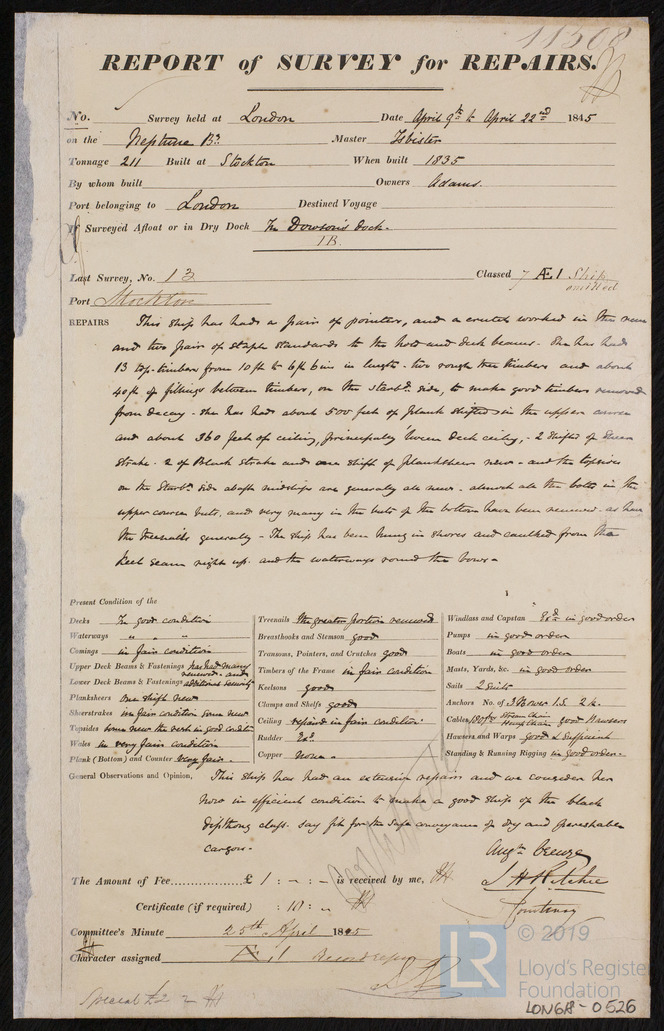 11508
REPORT of SURVEY for REPAIRS.
No. Survey held at London Date April 9th to April 22nd 1845
on the Neptune Bn Master Isbister
Tonnage 211 Built at Stockton When built 1835
By whom built Owners Adams.
Port belonging to London Destined Voyage
If Surveyed Afloat or in Dry Dock In Dowson's Dock.
Last Survey, No. 13 Classed 7 Æ1
omitted
Port Stockton
REPAIRS This ship has had a pair of pointers, and a crutch worked in the
and two pair of staple standards to the hold and deck beams. She has had
13 top-timbers from 10 ft to 6 ft 6 ins in length. two rough tree timbers and about
40 ft of fillings between timbers, on the starbd. side, to make good timbers removed
from decay. She has had about 500 feet of plank shifted in the upper course
and about 360 feet of ceiling, principally 'tween deck ceiling, - 2 shifts of Sheer
Strake. 2 of Black Strake and one shift of plansheer new. and the topsides
on the Starbd. side abaft midships are generally all new. almost all the bolts in the
upper course, and very many in the buts of the bottom have been renewed. as have
the treenails generally - The ship has been hung in shores and caulked from the
keel seam right up. and the waterways round the bows.
Present Condition of the
Decks In good condition
Waterways " " "
Comings in fair condition
Upper Deck Beams & Fastenings has had many
renewed. and
Lower Deck Beams & Fastenings additional security
Planksheers One shift new
Sheerstrakes in fair condition some new
Topsides some new the rest in good condition
Wales in very fair condition
Plank (Bottom) and Counter very fair.
Treenails the greater portion renewed
Breasthooks and Stemson good
Transoms, Pointers, and Crutches good
Timbers of the Frame in fair condition
Keelsons good
Clamps and Shelfs good
Ceiling repaired in fair condition
Rudder Exd.
Copper None.
Windlass and Capstan Exd. in good order
Pumps in good order
Boats in good order
Masts, Yards, &c. in good order
Sails 2 Suits
Anchors No. of 3 Bower 1 S. 2 k.
Cables, Stream Chain good Hawsers
Hawsers and Warps Good & Sufficient
Standing & Running Rigging in good order.
General Observations and Opinion, This ship has had an extensive repair and we consider her
now in efficient condition to make a good ship of the black
dipthong class. say fit for the safe conveyance of dry and perishable
cargoes.
The Amount of Fee £ 1 : - : - is received by me,
J H Ritchie
Courtenay
Certificate (if required) : 10 : -
Committee's Minute 25th April 1845
Character assigned Æ 1
Special £2
© 2019
LR
Lloyd's Register
Foundation
LON618-0526